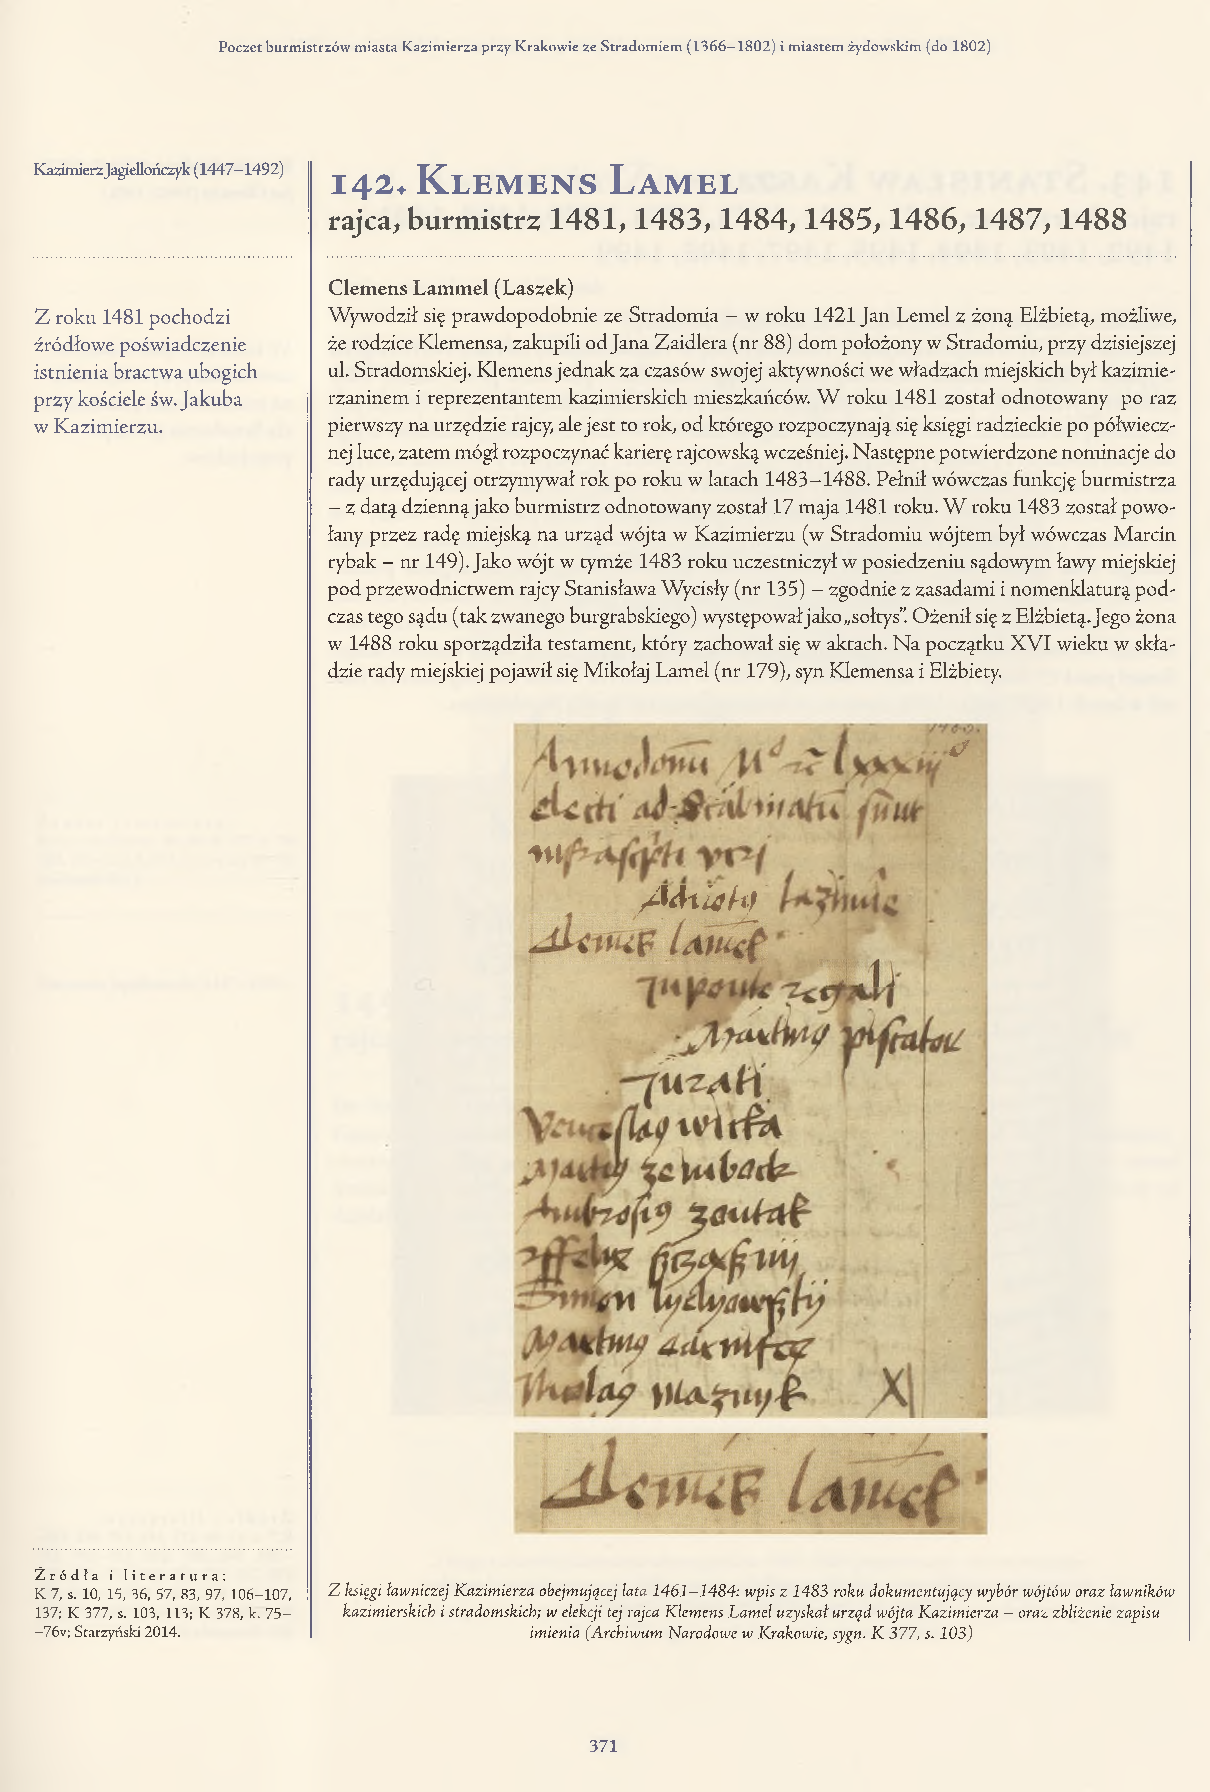 Poczet burmistrzów miasta Kazimierza przy Krakowie ze Stradomiem (1366–1802) i miastem żydowskim (do 1802)
Kazimierz Jagiellończyk (1447–1492)
Z roku 1481 pochodzi
źródłowe poświadczenie
istnienia bractwa ubogich
przy kościele św. Jakuba
w Kazimierzu.
142. Klemens Lamel
rajca, burmistrz 1481, 1483, 1484, 1485, 1486, 1487, 1488
Clemens Lammel (Laszek)
Wywodził się prawdopodobnie ze Stradomia – w roku 1421 Jan Lemel z żoną Elżbietą, możliwe,
że rodzice Klemensa, zakupili od Jana Zaidlera (nr 88) dom położony w Stradomiu, przy dzisiejszej
ul. Stradomskiej. Klemens jednak za czasów swojej aktywności we władzach miejskich był kazimie-
rzaninem i reprezentantem kazimierskich mieszkańców. W roku 1481 został odnotowany po raz
pierwszy na urzędzie rajcy, ale jest to rok, od którego rozpoczynają się księgi radzieckie po półwiecz-
nej luce, zatem mógł rozpoczynać karierę rajcowską wcześniej. Następne potwierdzone nominacje do
rady urzędującej otrzymywał rok po roku w latach 1483–1488. Pełnił wówczas funkcję burmistrza
– z datą dzienną jako burmistrz odnotowany został 17 maja 1481 roku. W roku 1483 został powo-
łany przez radę miejską na urząd wójta w Kazimierzu (w Stradomiu wójtem był wówczas Marcin
rybak – nr 149). Jako wójt w tymże 1483 roku uczestniczył w posiedzeniu sądowym ławy miejskiej
pod przewodnictwem rajcy Stanisława Wycisły (nr 135) – zgodnie z zasadami i nomenklaturą pod-
czas tego sądu (tak zwanego burgrabskiego) występował jako „sołtys”. Ożenił się z Elżbietą. Jego żona
w 1488 roku sporządziła testament, który zachował się w aktach. Na początku XVI wieku w skła-
dzie rady miejskiej pojawił się Mikołaj Lamel (nr 179), syn Klemensa i Elżbiety.
Źródła i literatura:
K 7, s. 10, 15, 36, 57, 83, 97, 106–107,
137; K 377, s. 103, 113; K 378, k. 75–
–76v; Starzyński 2014.
Z księgi ławniczej Kazimierza obejmującej lata 1461–1484: wpis z 1483 roku dokumentujący wybór wójtów oraz ławników
kazimierskich i stradomskich; w elekcji tej rajca Klemens Lamel uzyskał urząd wójta Kazimierza – oraz zbliżenie zapisu
imienia (Archiwum Narodowe w Krakowie, sygn. K 377, s. 103)
371